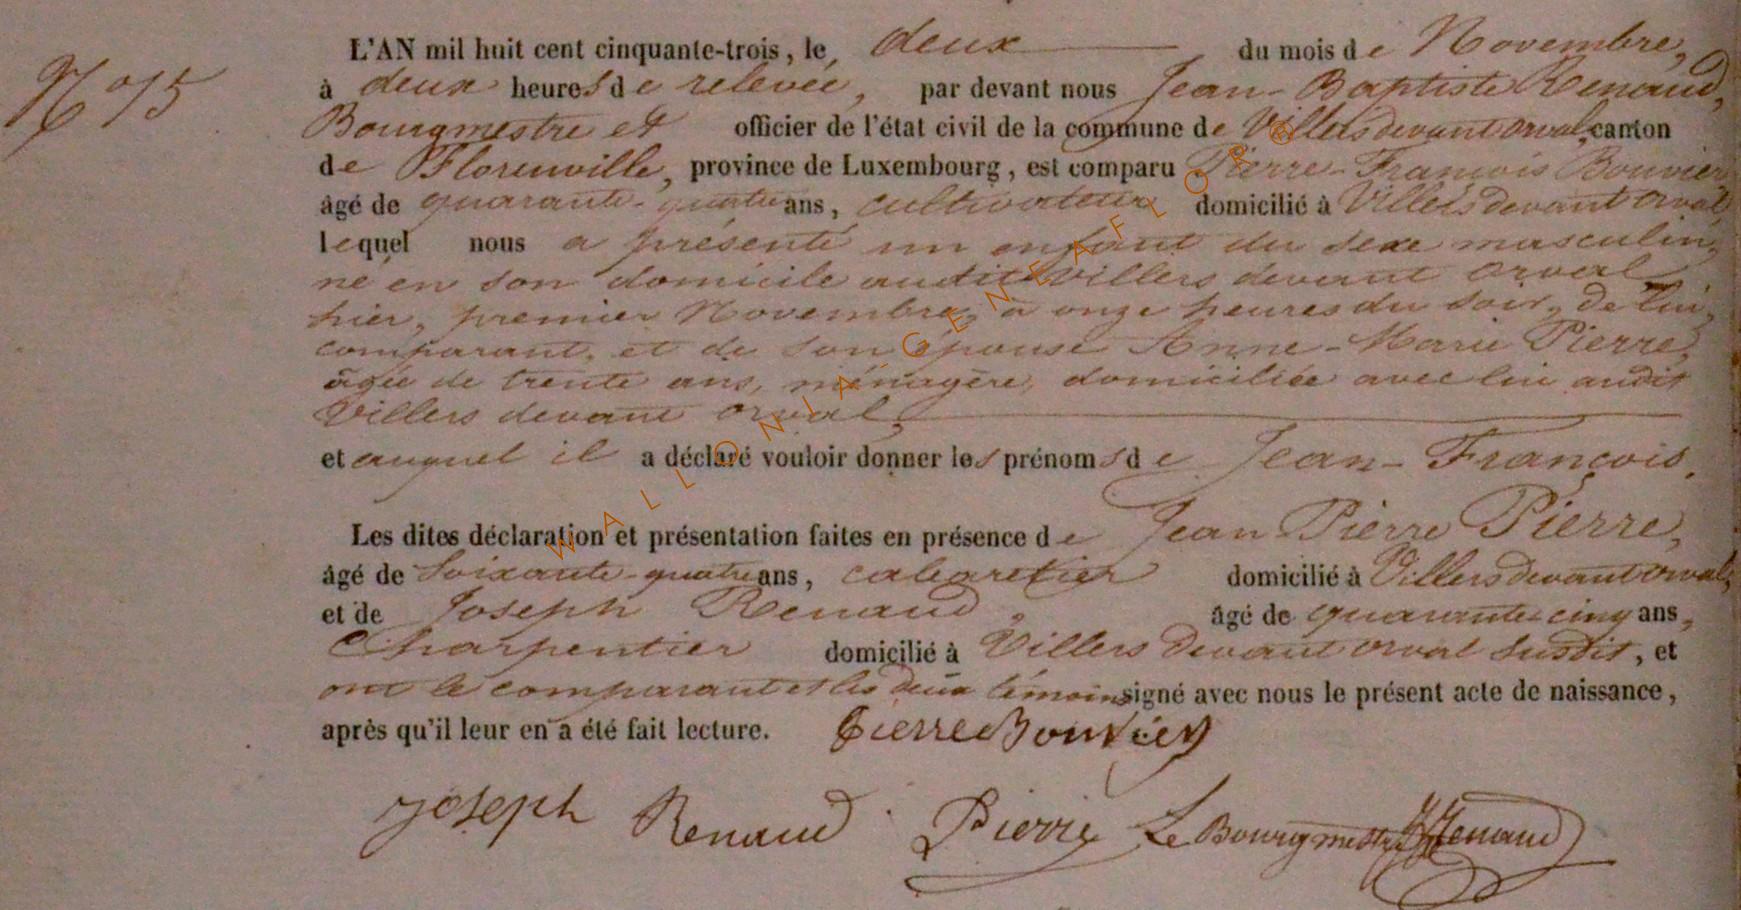 N° 75
L'AN mil huit cent cinquante-trois, le deux du mois de Novembre,
à deux heures de relevée, par devant nous Jean-Baptiste Renaud,
Bourgmestre et officier de l'état civil de la commune de Villers devant orval, canton
de Florenville, province de Luxembourg, est comparu Pierre-François Bouvier
âgé de quarante-quatre ans, cultivateur domicilié à Villers devant orval
lequel nous a présenté un enfant du sexe masculin,
né en son domicile audit Villers devant orval
hier, premier Novembre, à onze heures du soir, de lui,
comparant, et de son épouse Anne-Marie Pierre,
âgée de trente ans, ménagère, domiciliée avec lui audit
Villers devant orval,
et auquel il a déclaré vouloir donner les prénoms de Jean-François.
Les dites déclaration et présentation faites en présence de Jean Pierre Pierre,
âgé de soixante-quatre ans, cabaretier domicilié à Villers devant orval,
et de Joseph Renaud, âgé de quarante-cinq ans,
Charpentier domicilié à Villers devant orval susdit, et
ont le comparant et les deux témoins signé avec nous le présent acte de naissance,
après qu'il leur en a été fait lecture. Pierre Bouvier
Joseph Renaud Pierre Le Bourgmestre JBRenaud
WALLONIA-GENEAFLOR®